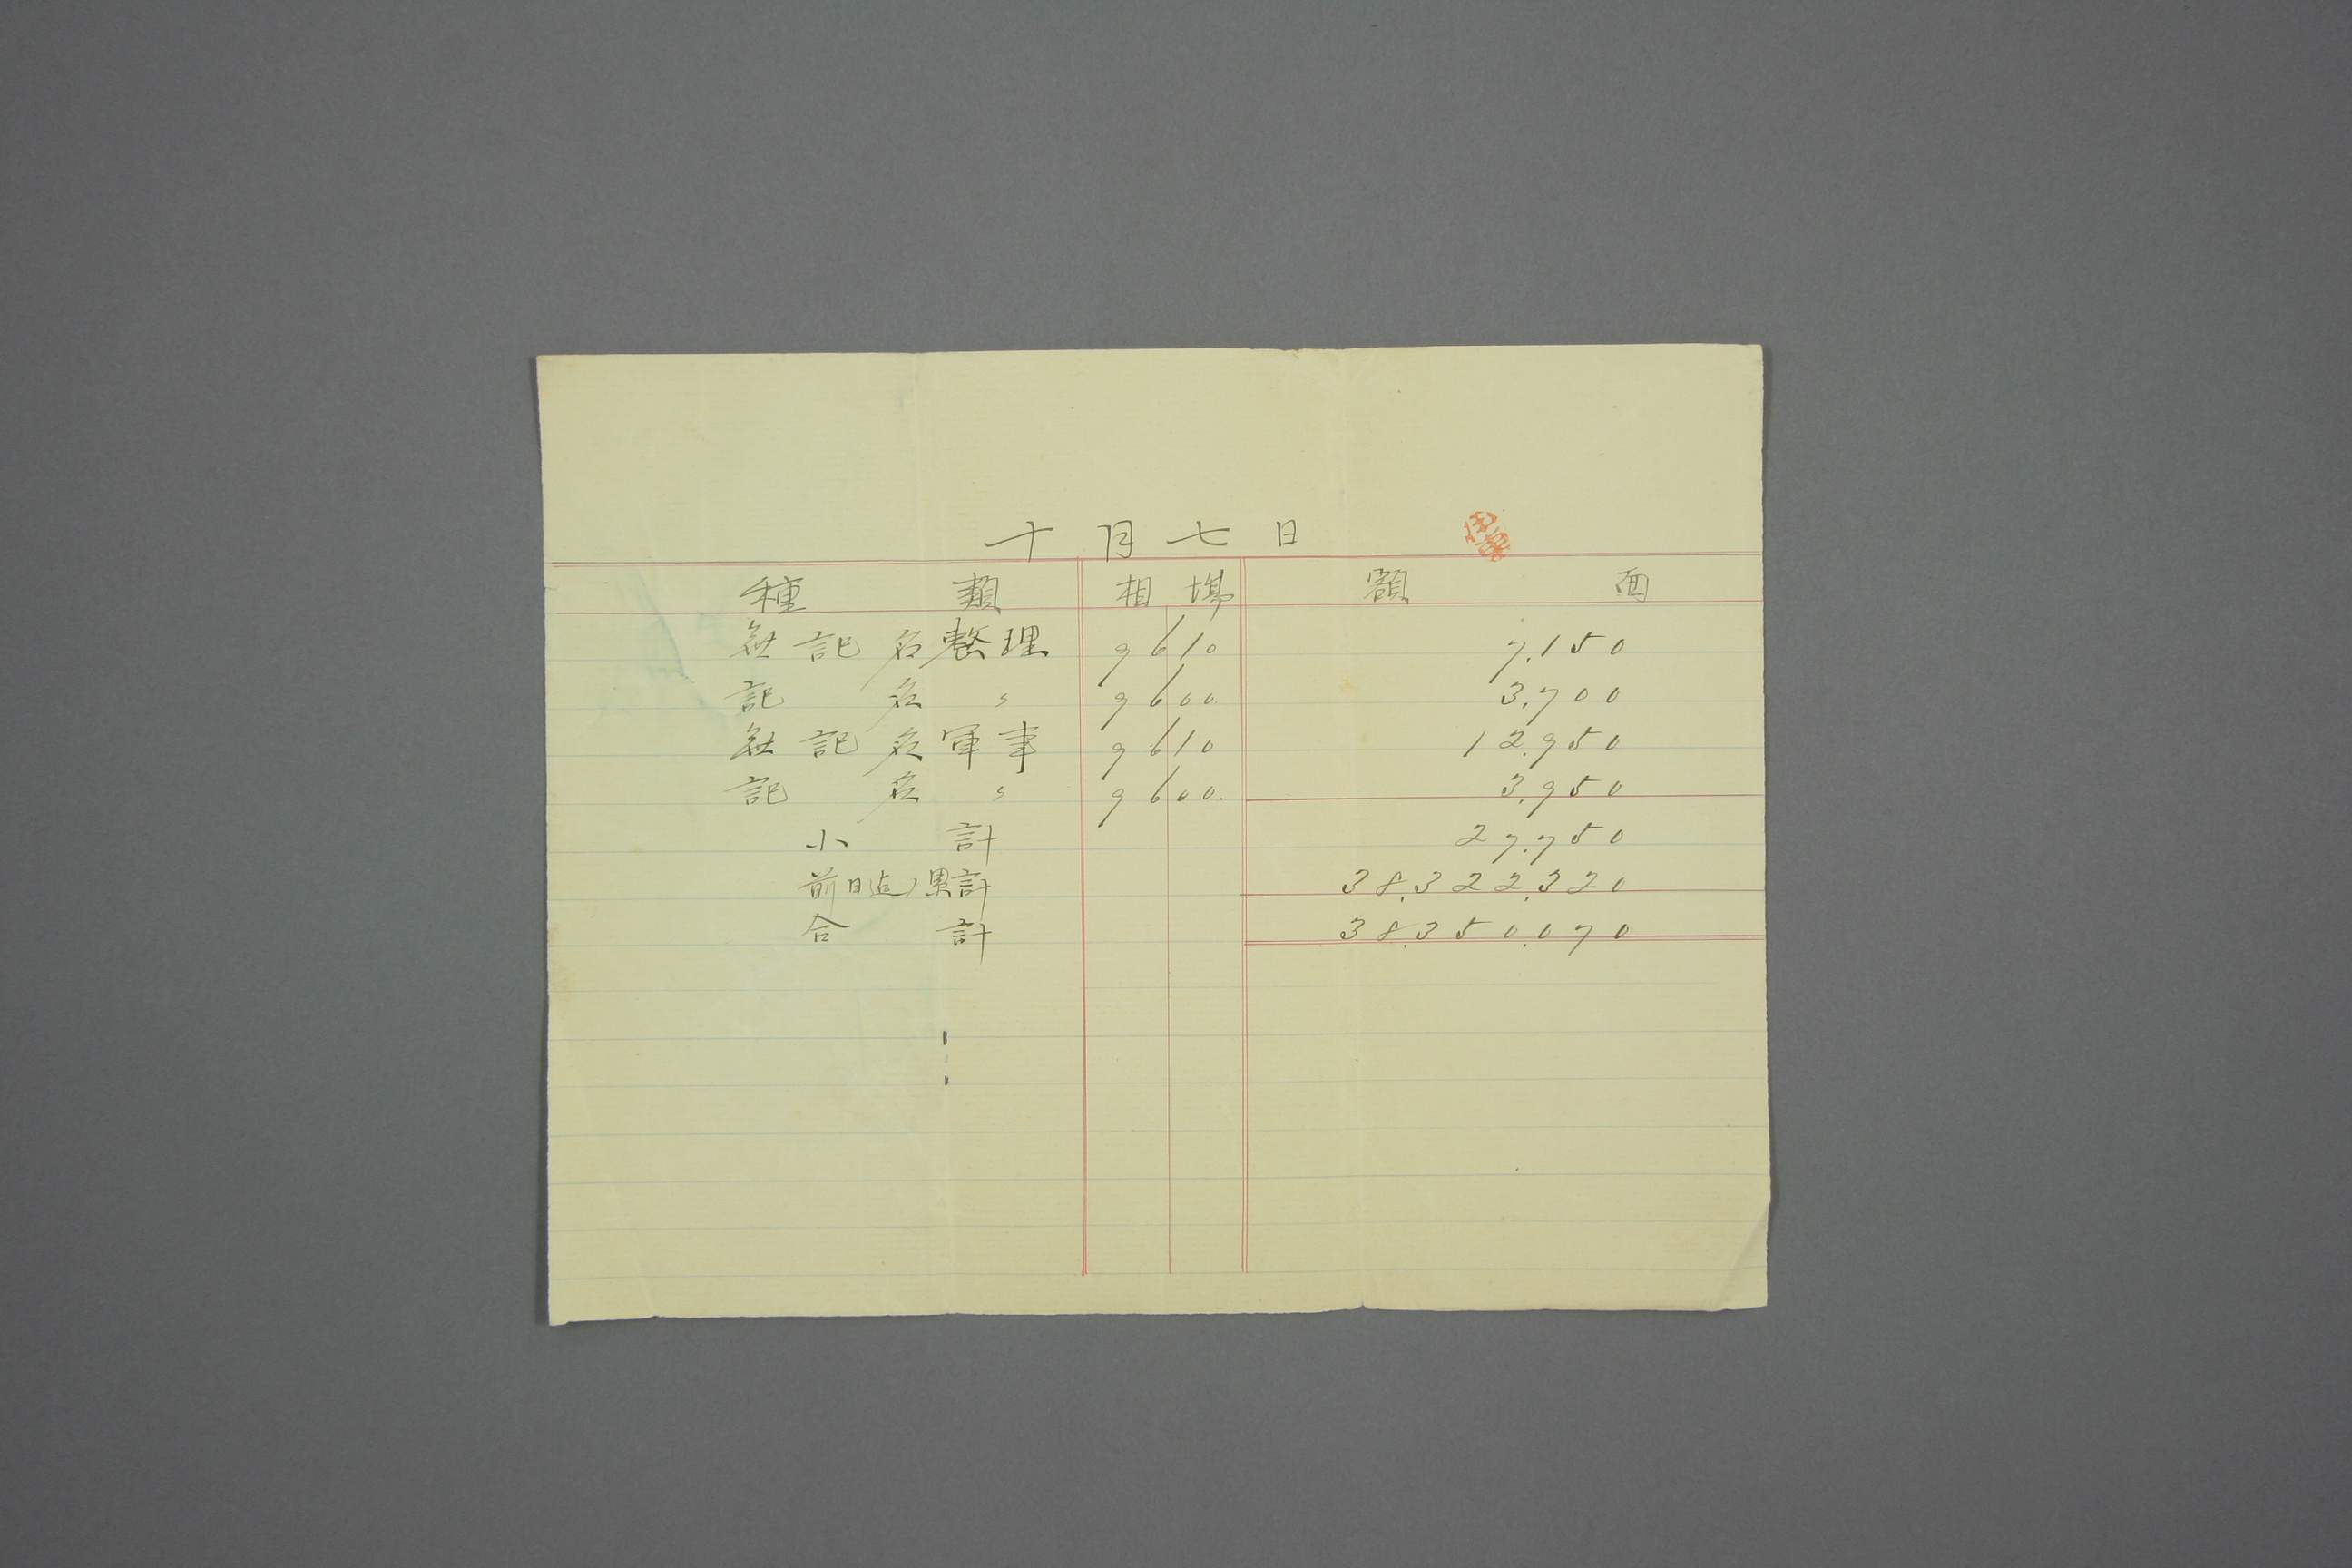 十月七日
種類 相場 額面
無記名整理 9610 7,150
記名〃 9600 3,700
無記名軍事 9610 12,950
記名〃 9600. 3,950
小計 27,750
前日迠ノ累計 38,322,320
合計 38,350,070